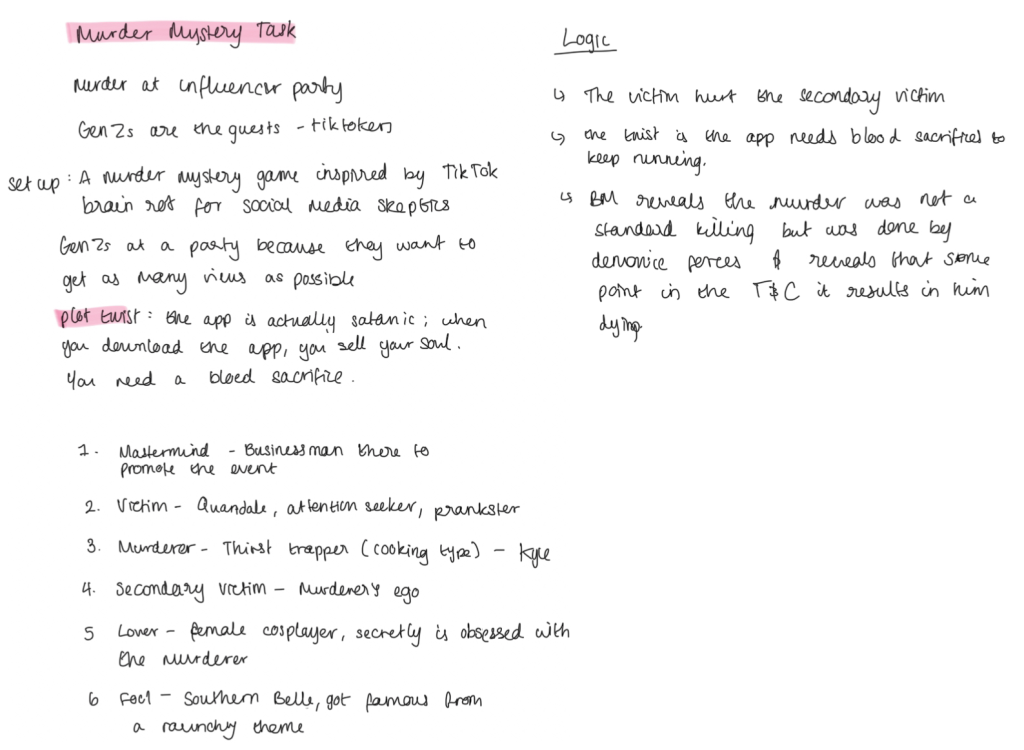 Murder Mystery Task
Murder at influencer party
Gen Zs are the guests - tiktokers
set up : A murder mystery game inspired by TikTok
brain rot for social media skeptics
Gen Zs at a party because they want to
get as many views as possible
plot twist : the app is actually satanic ; when
you download the app, you sell your soul.
You need a blood sacrifice .
1. Mastermind - Businessman there to
promote the event
2. Victim - Quandale, attention seeker, prankster
3. Murderer - Thirst trapper (cooking type) - Kyle
4. Secondary victim - Murderer's ego
5 Lover - female cosplayer, secretly is obsessed with
the murderer
6 Fool - Southern Belle, got famous from
a raunchy theme
Logic
↳ The victim hurt the secondary victim
↳ the twist is the app needs blood sacrifices to
keep running.
↳ BM reveals the murder was not a
standard killing but was done by
demonic forces & reveals that some
point in the T&C it results in him
dying